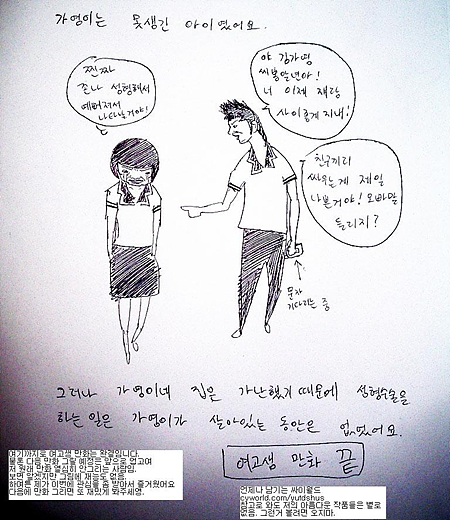 가영이는 못생긴 아이였어요.
찐짜
존나 성형해서
예뻐져서
나타날거야!
야 김가영
씨봉알년아!
너 이제 쟤랑
사이좋게 지내!
친구끼리
싸우는게 제일
나쁜거야! 오빠말
들리지?
문자
기다리는 중
그러나 가영이네 집은 가난했기 때문에 성형수술을
하는 일은 가영이가 살아있는 동안은 없었어요.
여고생 만화 끝
여기까지로 여고생 만화는 완결입니다.
물론 다음 만화 그릴 예정은 앞으로 없고여
저 원래 만화 열심히 안그리는 사람임.
보면 알겠지만 그림에 재능도 없음.
하여튼 제가 이번에 관심을 좀 받아서 즐거웠어요
다음에 만화 그리면 또 재밌게 봐주세영.
언제나 남기는 싸이월드
cyworld.com/yutdshus
참고로 와도 저의 아름다운 작품들은 별로
없음. 그런거 볼려면 오지마.